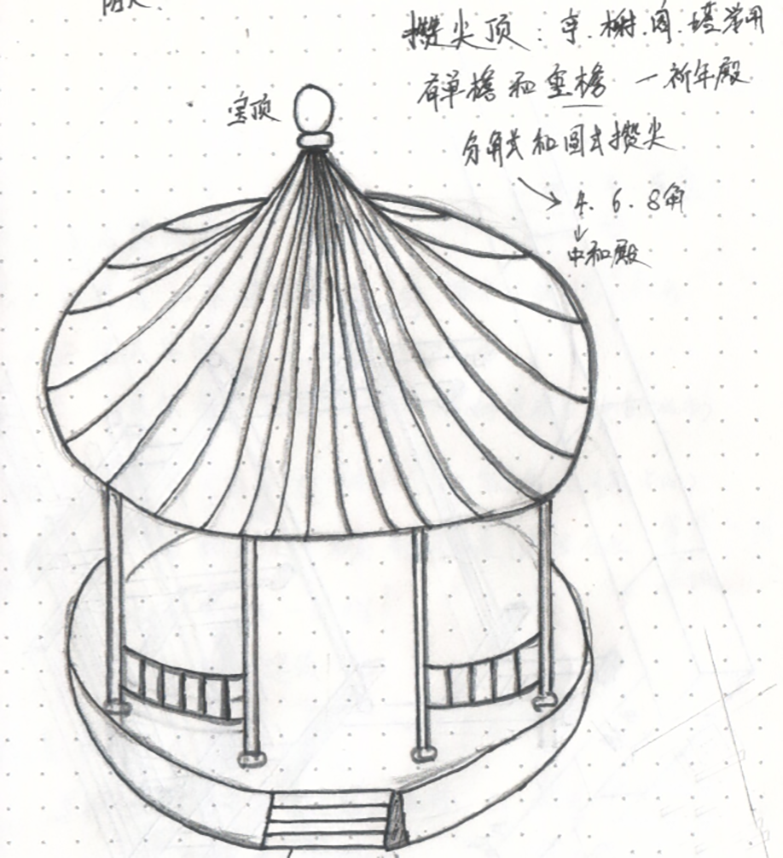 攒尖顶：亭.榭.阁.塔常用
宝顶
有单檐和重檐 — 祈年殿
分角式和圆式攒尖
4. 6. 8角
中和殿